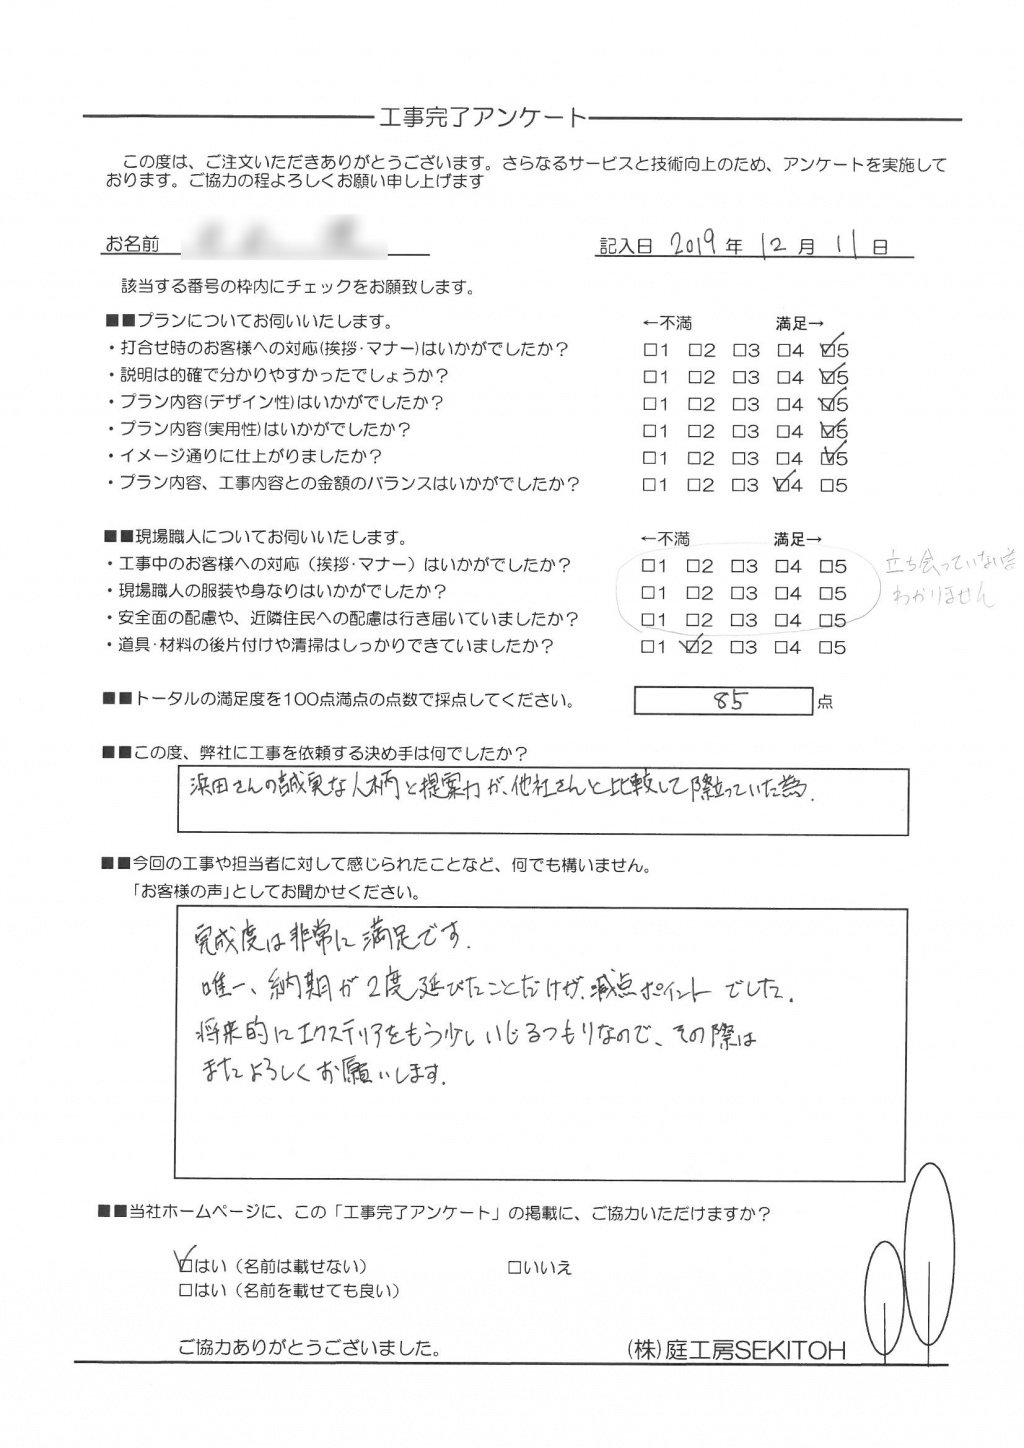 工事完了アンケート
この度は、ご注文いただきありがとうございます。さらなるサービスと技術向上のため、アンケートを実施して
おります。ご協力の程よろしくお願い申し上げます
お名前 記入日 2019 年 12 月 11 日
該当する番号の枠内にチェックをお願致します。
■■プランについてお伺いいたします。 ←不満 満足→
・打合せ時のお客様への対応(挨拶・マナー)はいかがでしたか? □1 □2 □3 □4 ☑5
・説明は的確で分かりやすかったでしょうか? □1 □2 □3 □4 ☑5
・プラン内容(デザイン性)はいかがでしたか? □1 □2 □3 □4 ☑5
・プラン内容(実用性)はいかがでしたか? □1 □2 □3 □4 ☑5
・イメージ通りに仕上がりましたか? □1 □2 □3 □4 ☑5
・プラン内容、工事内容との金額のバランスはいかがでしたか? □1 □2 □3 ☑4 □5
■■現場職人についてお伺いいたします。 ←不満 満足→
・工事中のお客様への対応(挨拶・マナー)はいかがでしたか? □1 □2 □3 □4 □5 立ち会っていない為
・現場職人の服装や身なりはいかがでしたか? □1 □2 □3 □4 □5 わかりません
・安全面の配慮や、近隣住民への配慮は行き届いていましたか? □1 □2 □3 □4 □5
・道具・材料の後片付けや清掃はしっかりできていましたか? □1 ☑2 □3 □4 □5
■■トータルの満足度を100点満点の点数で採点してください。 85 点
■■この度、弊社に工事を依頼する決め手は何でしたか?
浜田さんの誠実な人柄と提案力が、他社さんと比較して際立っていた為.
■■今回の工事や担当者に対して感じられたことなど、何でも構いません。
「お客様の声」としてお聞かせください。
完成度は非常に満足です.
唯一、納期が2度延びたことだけが、減点ポイントでした.
将来的にエクステリアをもう少しいじるつもりなので、その際は
またよろしくお願いします.
■■当社ホームページに、この「工事完了アンケート」の掲載に、ご協力いただけますか?
☑はい(名前は載せない) □いいえ
□はい(名前を載せても良い)
ご協力ありがとうございました。 (株)庭工房SEKITOH